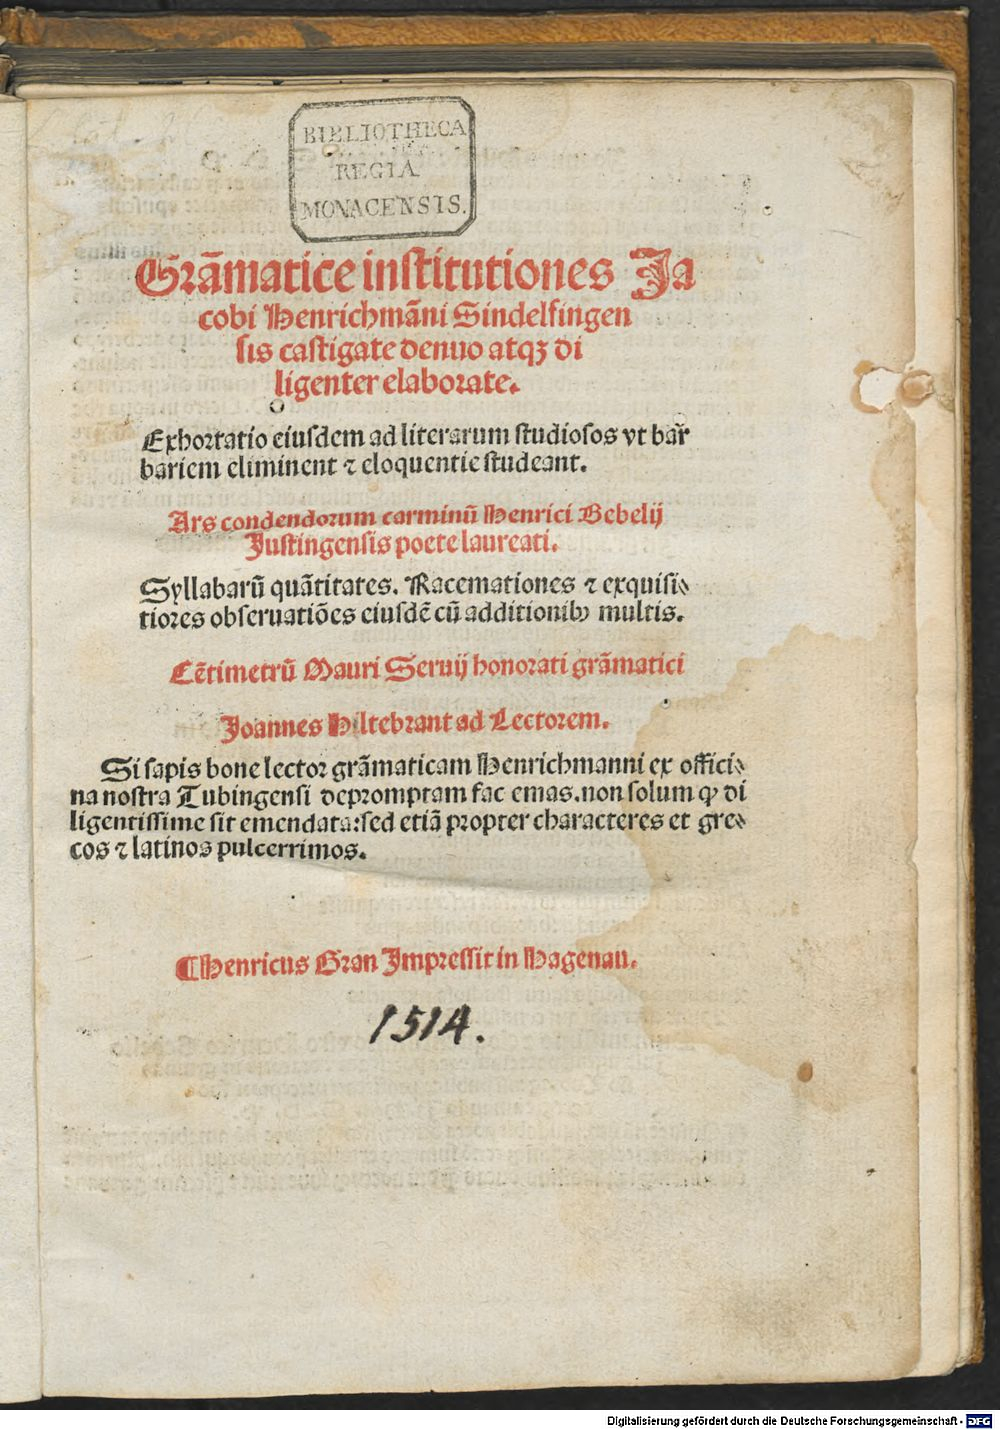 BIBLIOTHECA
REGIA
MONACENSIS.
Grãmatice institutiones Ja
cobi Henrichmãni Sindelfingen
sis castigate denuo atqꝫ di
ligenter elaborate.
Exhortatio eiusdem ad literarum studiosos vt bar
bariem eliminent ⁊ eloquentie studeant.
Ars condendorum carminũ Henrici Bebelij
Justingensis poete laureati.
Syllabarũ quãtitates. Racemationes ⁊ exquisi⸗
tiores obseruatiões eiusdẽ cũ additionibꝰ multis.
Cẽtimetrũ Mauri Seruij honorati grãmatici
Joannes Hiltebrant ad Lectorem.
Si sapis bone lector grãmaticam Henrichmanni ex offici⸗
na nostra Tubingensi depromptam fac emas. non solum ꝙ di
ligentissime sit emendata: sed etiã propter characteres et gre⸗
cos ⁊ latinos pulcerrimos.
¶Henricus Gran Impressit in Hagenau.
1514.
Digitalisierung gefördert durch die Deutsche Forschungsgemeinschaft - DFG